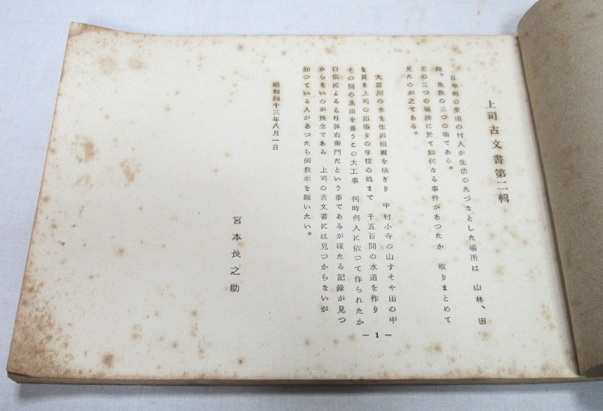 上司古文書第二輯
百年前の要道の村人が生活のたつきとした場所は 山林、田
畑、魚政の三つの場である。
この三つの場所に於て如何なる事件があつたか 取りまとめて
見たのが之である。
大雲川の水を を 中村小寺の山すそや田の中
を貫き上司の出張りの学校の処まで 千五百間の水道を作り
その間の水田を養うこの大工事 何時何人に依つて作られたか
口伝によると 右衛門だという事であるが確たる記録が見つ
からないのが残念である 上司の古文書には見つからないが
知つている人があつたら御教示を願いたい。
昭和四十三年八月一日
宮本長之助
— 1 —